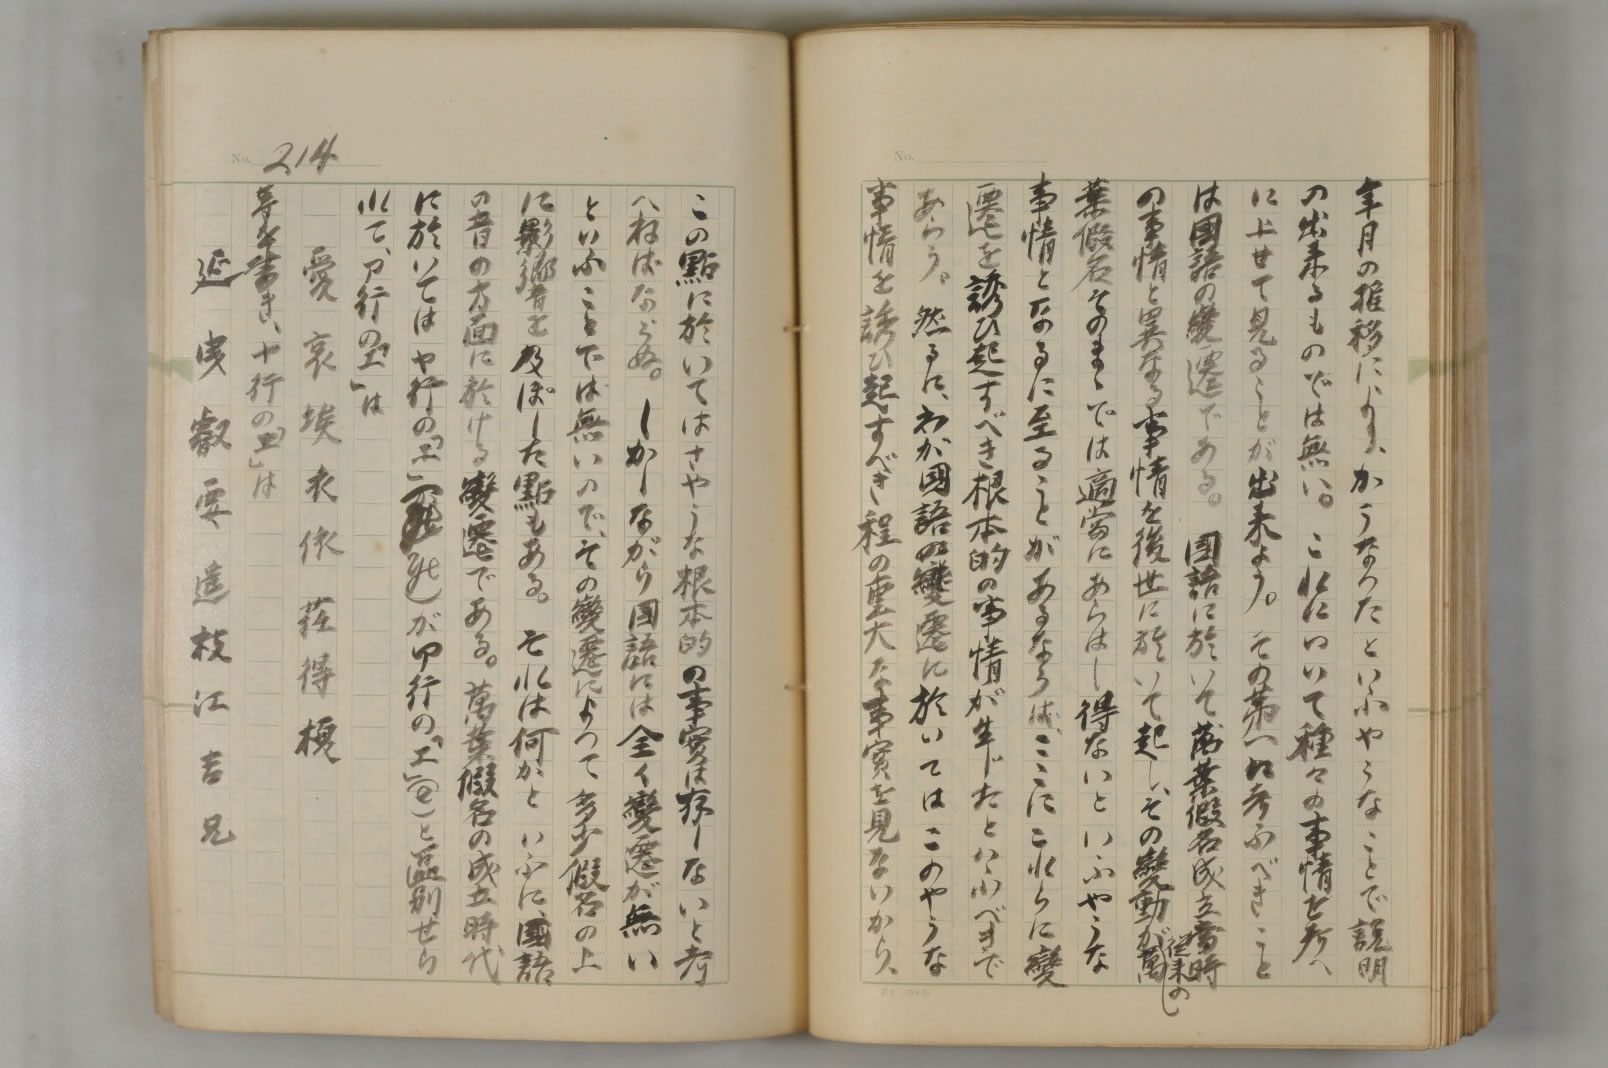 年月の推移によりかうなつたといふやうなことで説明
の出来るものでは無い。これについて種々の事情を考へ
に上せて見ることが出来よう。その第一に考ふべきこと
は國語の變遷である。國語に於いて萬葉假名成立當時
の事情と異なる事情を後世に於いて起し、その變動が從来の萬
葉假名そのまゝでは適當にあらはし得ないといふやうな
事情となるに至ることがあるならば、こゝにこれらに變
遷を誘ひ起すべき根本的の事情が生じたといふべきで
あらう。然るに、わが國語の變遷に於いてはこのやうな
事情を誘ひ起すべき程の重大な事實を見ないから、
No.
No. 214
この點に於いてはさやうな根本的の事實は存しないと考
へねばならぬ。しかしながら國語には全く變遷が無い
といふことでは無いので、その變遷によつて多少假名の上
に影響を及ぼした點もある。それは何かといふに、國語
の音の方面に於ける變遷である。萬葉假名の成立時代
に於いてはヤ行の「エ」がア行の「エ」(e)と區別せら
れて、ア行の「エ」は
愛 哀 埃 衣 依 荏 得 榎
等を書き、ヤ行の「エ」は
延 曳 叡 要 遥 枝 江 吉 兄